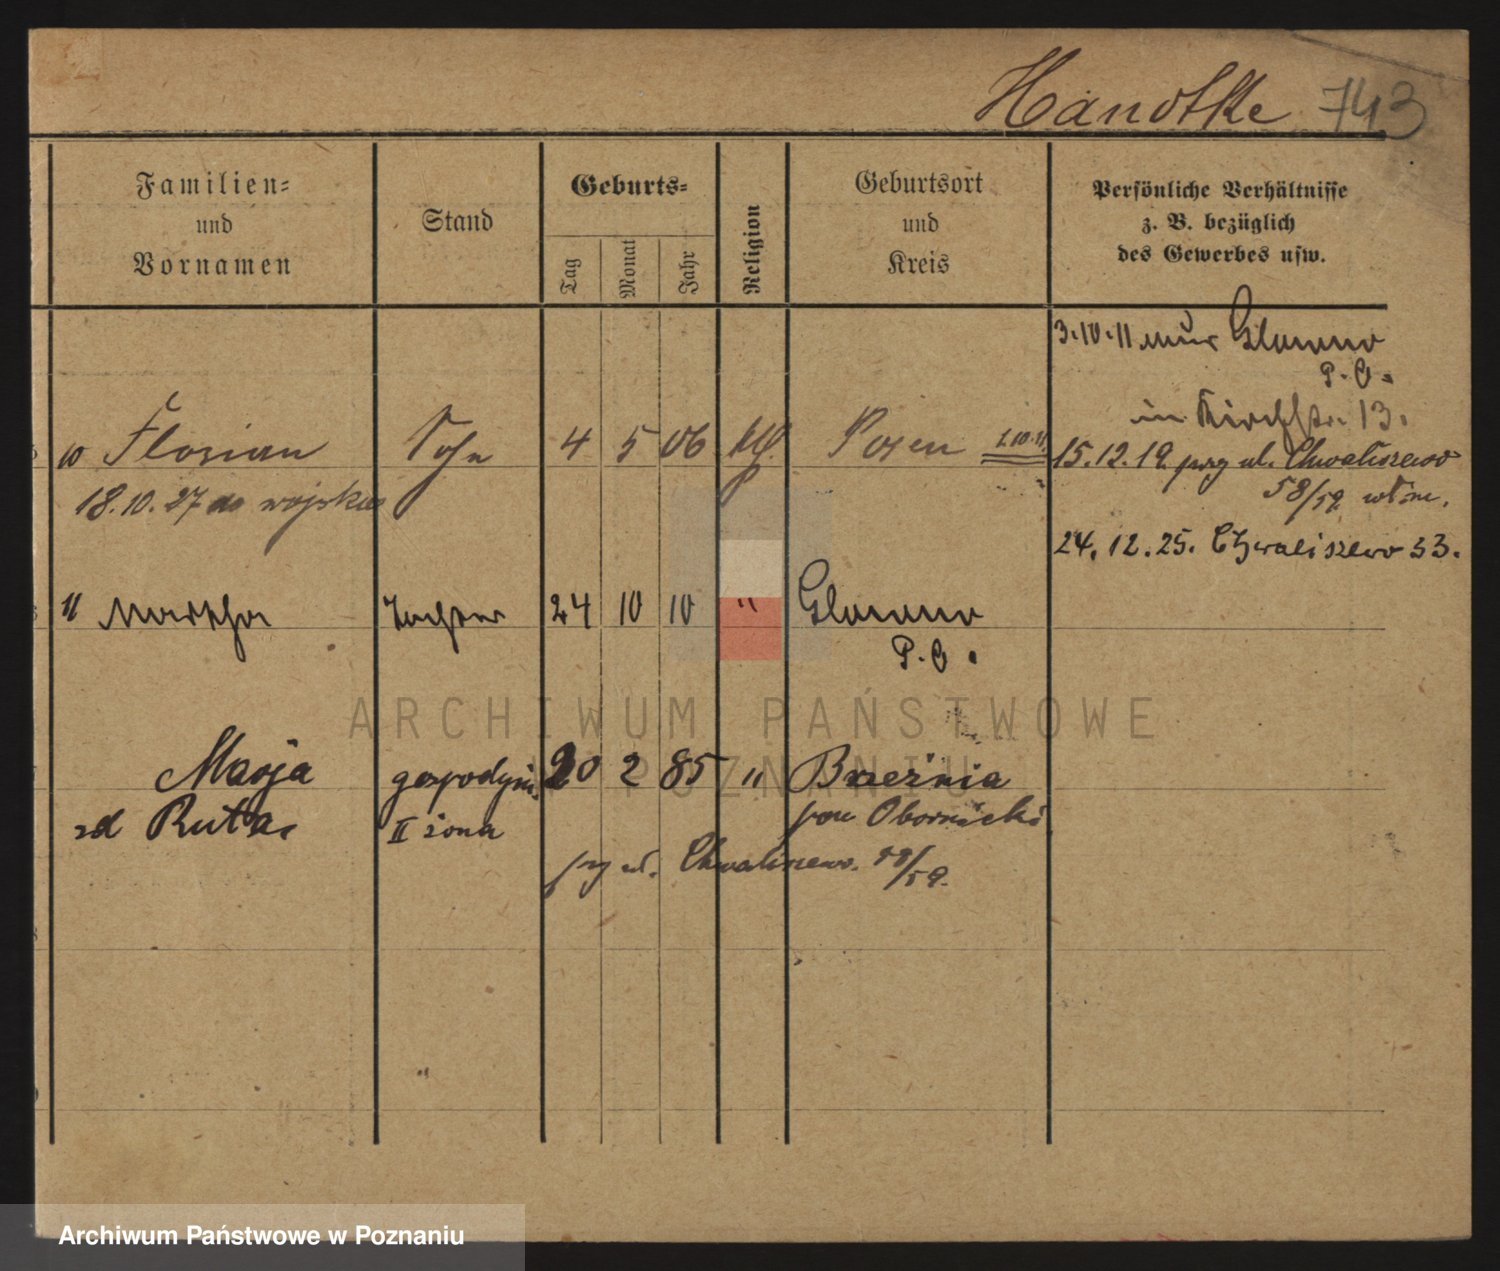 Handtke 743
Familien=
und
Vornamen
Stand
Geburts=
Tag
Monat
Jahr
Religion
Geburtsort
und
Kreis
Persönliche Verhältnisse
z. B. bezüglich
des Gewerbes usw.
3.10.11 Glowno
P.O.
in Kirchstr. 13.
10 Florian Sohn 4 5 06 kth. Posen 2.10.11
15.12.19 prz ul. Chwaliszewo
58/59 włsn.
18.10.27 do wojska
24.12.25. Chwaliszewo 53.
11 Martha Tochter 24 10 10 " Glowno
P.O.
ARCHIWUM PAŃSTWOWE
W POZNANIU
Marja gospodyni 20 2 85 " Brzeźnia
zd Ruta II żona pow Obornicki
prz ul. Chwaliszewo. 58/59.
Archiwum Państwowe w Poznaniu